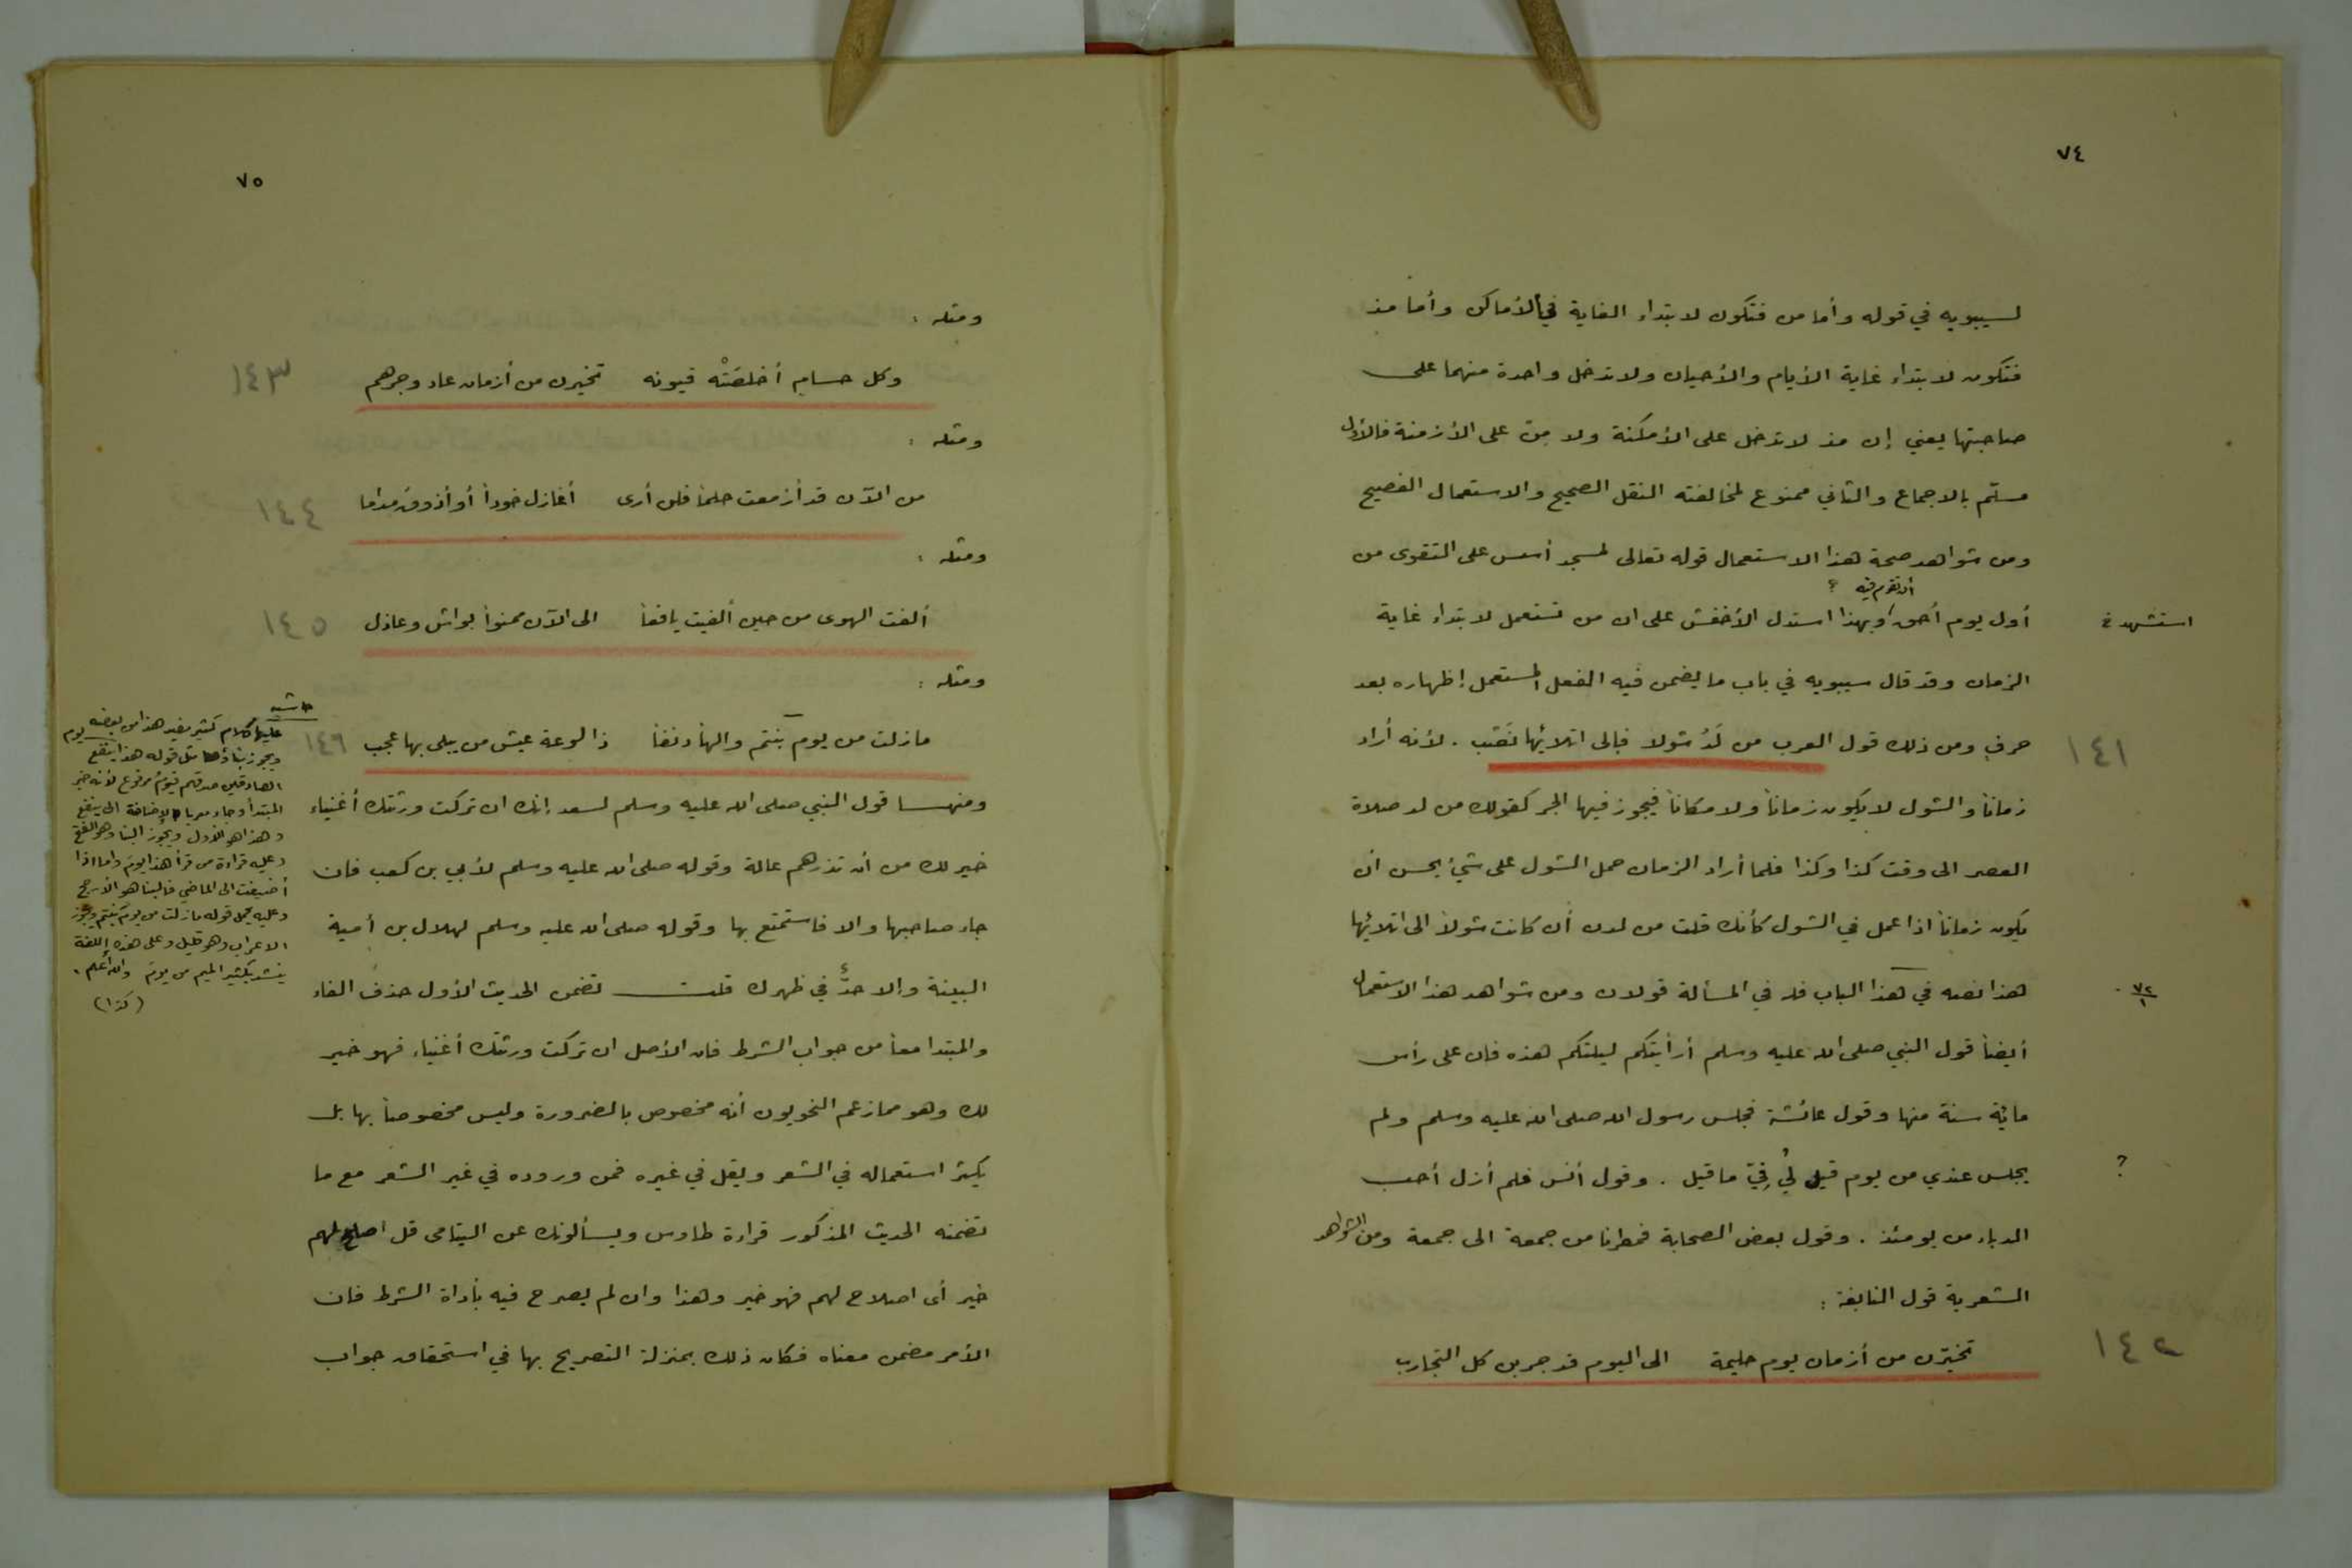 ٧٤
لسيبويه في قوله وأما من فتكون لابتداء الغاية في الأماكن وأما مذ
فتكون لابتداء غاية الأيام والأحيان ولا تدخل واحدة منهما على
صاحبتها يعني إن مذ لا تدخل على الأمكنة ولا مِن على الأزمنة فالأول
مسلّم بالاجماع والثاني ممنوع لمخالفته النقل الصحيح والاستعمال الفصيح
ومن شواهد صحة هذا الاستعمال قوله تعالى لمسجد أسس على التقوى من
أن تقوم فيه ؟
أول يوم أحق وبهذا استدل الأخفش على ان من تستعمل لابتداء غاية
استشهد
الزمان وقد قال سيبويه في باب ما يضمن فيه الفعل المستعمل إظهاره بعد
حرفٍ ومن ذلك قول العرب من لَدُ شولا فإلى اتلائها نَصَب . لأنه أراد
١٤١
زماناً والشول لا يكون زماناً ولا مكاناً فيجوز فيها الجر كقولك من لد صلاة
العصر الى وقت كذا وكذا فلما أراد الزمان حمل الشول على شيء يحسن أن
يكون زماناً اذا عمل في الشول كأنك قلت من لدن أن كانت شولاً الى اتلائها
هذا نصه في هذا الباب فله في المسألة قولان ومن شواهد هذا الاستعمال
٧٢/١
أيضاً قول النبي صلى الله عليه وسلم أرأيتكم ليلتكم هذه فان على رأس
ماية سنة منها وقول عائشة فجلس رسول الله صلى الله عليه وسلم ولم
يجلس عندي من يوم قيل لي فيّ ما قيل . وقول أنس فلم أزل أحب
؟
الدباء من يومئذ . وقول بعض الصحابة فمطرنا من جمعة الى جمعة ومن الشواهد
الشعرية قول النابغة :
تخيّرن من أزمان يوم حليمة الى اليوم قد جربن كل التجارب
١٤٢
٧٥
ومثله :
وكل حسام أخلصَتْه قيونه تخيرن من أزمان عاد وجرهم
١٤٣
ومثله :
من الآن قد أزمعت حلماً فلن أرى أغازل خوداً أو أذوق مداما
١٤٤
ومثله :
ألفت الهوى من حين ألفيت يافعاً الى الآن ممنواً بواش وعاذل
١٤٥
ومثله :
مازلت من يوم بنتم والهاً دنفاً ذا لوعة عيش من يبلى بها عجب
١٤٦
ومنهـــا قول النبي صلى الله عليه وسلم لسعد إنك ان تركت ورثتك أغنياء
خير لك من أن تذرهم عالة وقوله صلى الله عليه وسلم لأبي بن كعب فان
جاء صاحبها والا فاستمتع بها وقوله صلى الله عليه وسلم لهلال بن أمية
البينة وإلا حدٌّ في ظهرك قلت تضمن الحديث الأول حذف الفاء
والمبتدا معاً من جواب الشرط فان الأصل ان تركت ورثتك أغنياء فهو خير
لك وهو مما زعم النحويون أنه مخصوص بالضرورة وليس مخصوصاً بها بل
يكثر استعماله في الشعر ويقل في غيره فمن وروده في غير الشعر مع ما
تضمنه الحديث المذكور قراءة طاوس ويسألونك عن اليتامى قل اصلح لهم
خير أى اصلاح لهم فهو خير وهذا وان لم يصرح فيه بأداة الشرط فان
الأمر مضمن معناه فكان ذلك بمنزلة التصريح بها في استحقاق جواب
حاشية
عليها كلام كثير مفيد هذا من بعضه
ويجوز بناؤها مثل قوله هذا يوم ينفع
الصادقين صدقهم فيوم مرفوع لأنه خبر
المبتدأ وجاء معربا للإضافة الى ينفع
وهذا هو الأول ويجوز البنا وهو الفتح
وعليه قراءة من قرأ هذا يومَ واما اذا
أضيفت الى الماضي فالبنا هو الأرجح
وعليه يحمل قوله مازلت من يومَ بنتم ويجوز
الاعراب وهو قليل وعلى هذه اللغة
ينشد بكسر الميم من يوم والله أعلم .
(كذا)